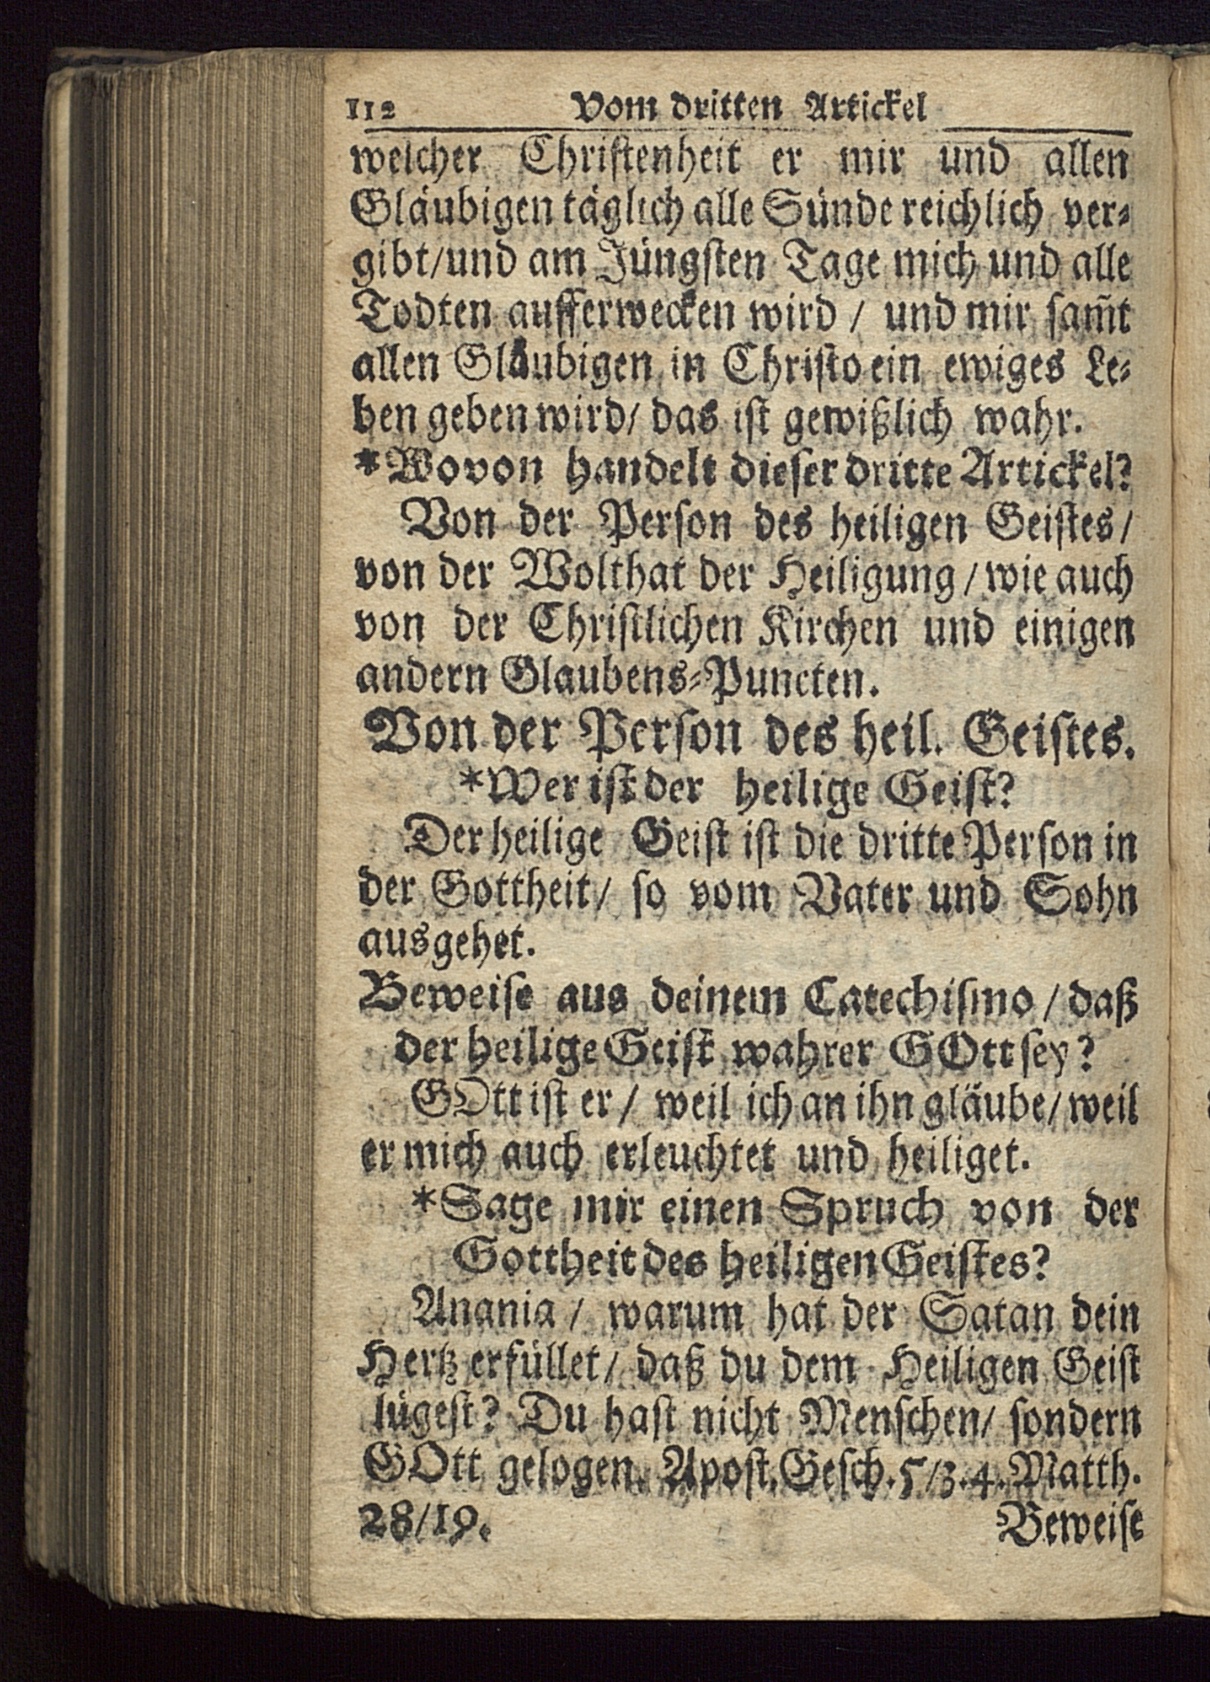 112 Vom dritten Artickel
welcher Christenheit er mir und allen
Gläubigen täglich alle Sünde reichlich ver-
gibt/und am Jüngsten Tage mich und alle
Todten aufferwecken wird / und mir sam̃t
allen Gläubigen in Christo ein ewiges Le-
ben geben wird/ das ist gewißlich wahr.
*Wovon handelt dieser dritte Artickel?
Von der Person des heiligen Geistes/
von der Wolthat der Heiligung/wie auch
von der Christlichen Kirchen und einigen
andern Glaubens-Puncten.
Von der Person des heil. Geistes.
*Wer ist der heilige Geist?
Der heilige Geist ist die dritte Person in
der Gottheit/ so vom Vater und Sohn
ausgehet.
Beweise aus deinem Catechismo/daß
der heilige Geist wahrer GOtt sey?
GOtt ist er/ weil ich an ihn gläube/weil
er mich auch erleuchtet und heiliget.
*Sage mir einen Spruch von der
Gottheit des heiligen Geistes?
Anania/ warum hat der Satan dein
Hertz erfüllet/ daß du dem Heiligen Geist
lügest? Du hast nicht Menschen/ sondern
GOtt gelogen. Apost.Gesch.5/3.4.Matth.
28/19. Beweise